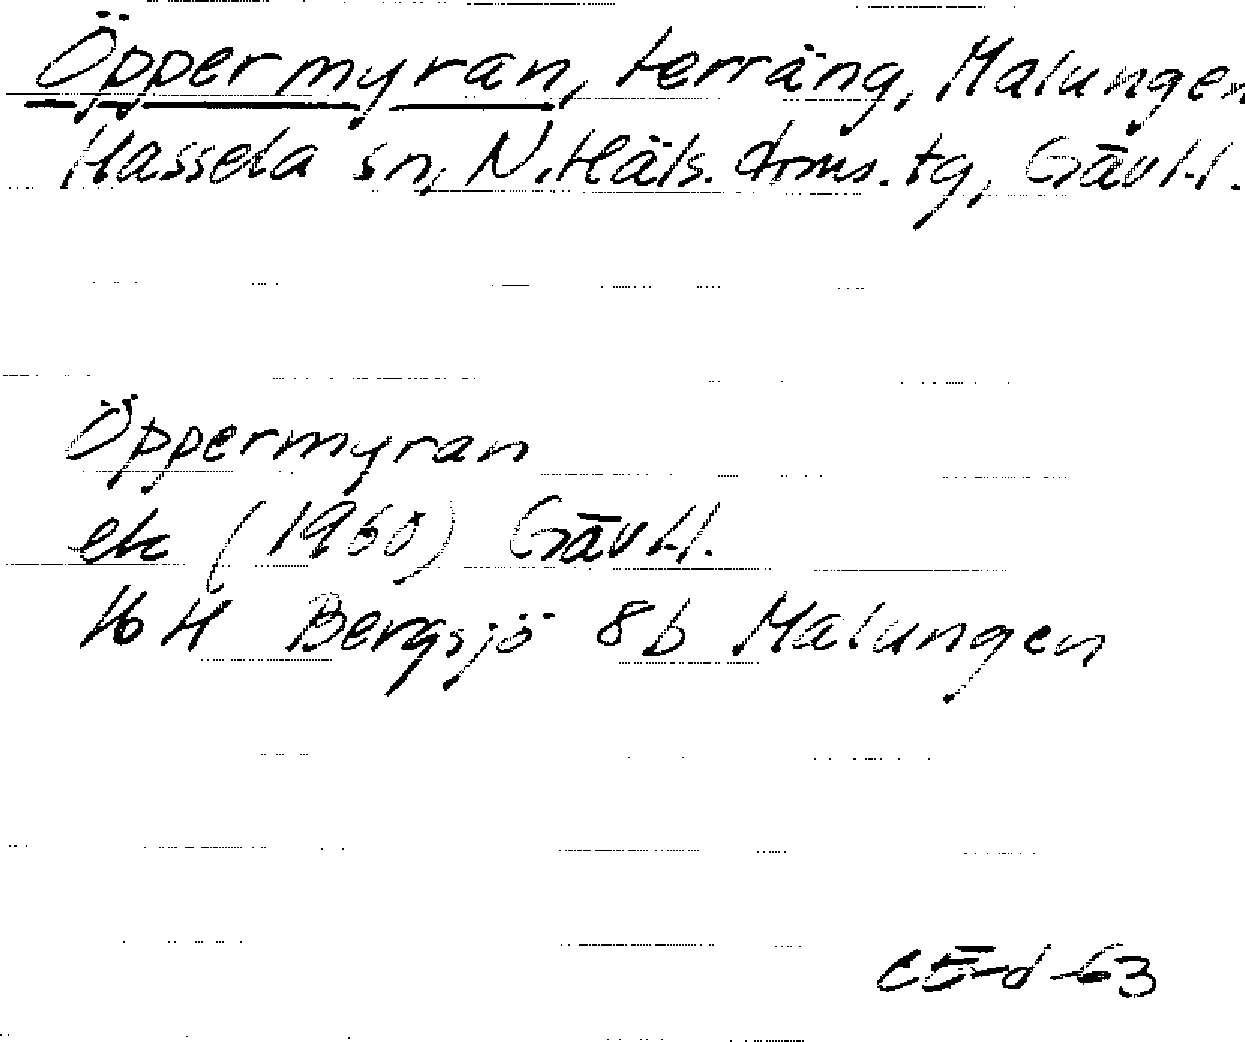 Öppermyran, terräng, Malungen
Hassela sn, N. Häls. doms. tg, Gävl.
Öppermyran
ek (1960) Gävl.
16 H Bergsjö 8b Malungen